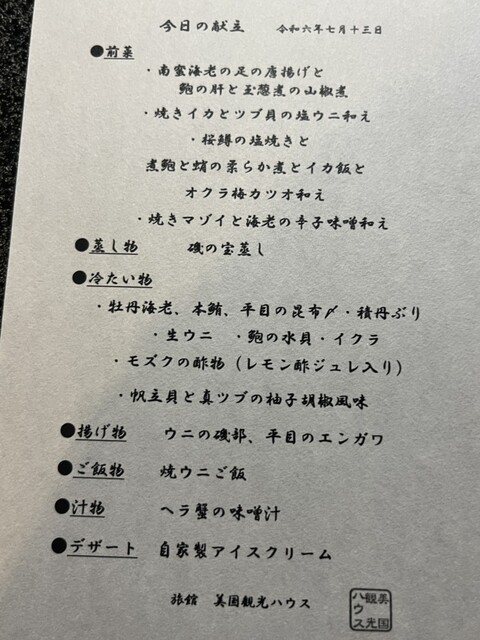 今日の献立 令和六年七月十三日
●前菜
・南蛮海老の足の唐揚げと
鮑の肝と玉葱煮の山椒煮
・焼きイカとツブ貝の塩ウニ和え
・桜鱒の塩焼きと
煮鮑と蛸の柔らか煮とイカ飯と
オクラ梅カツオ和え
・焼きマゾイと海老の辛子味噌和え
●蒸し物 磯の宝蒸し
●冷たい物
・牡丹海老、本鮪、平目の昆布〆・積丹ぶり
・生ウニ ・鮑の水貝・イクラ
・モズクの酢物（レモン酢ジュレ入り）
・帆立貝と真ツブの柚子胡椒風味
●揚げ物 ウニの磯部、平目のエンガワ
●ご飯物 焼ウニご飯
●汁物 ヘラ蟹の味噌汁
●デザート 自家製アイスクリーム
旅館 美国観光ハウス
美国
観光
ハウス